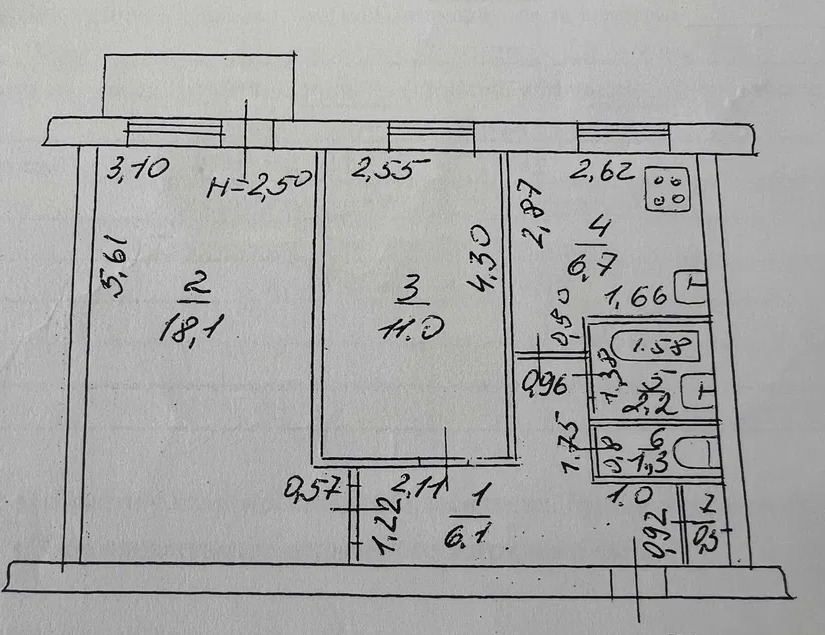 3,10
H=2,50
2,55
2,87
2,62
5,61
2
18,1
3
11.0
4,30
4
6,7
1,66
0,50
0,96
1,38
1.58
5
2,2
1.75
0,8
6
1,3
0,57
2,11
1,22
1
6.1
1.0
0,92
7
0,5